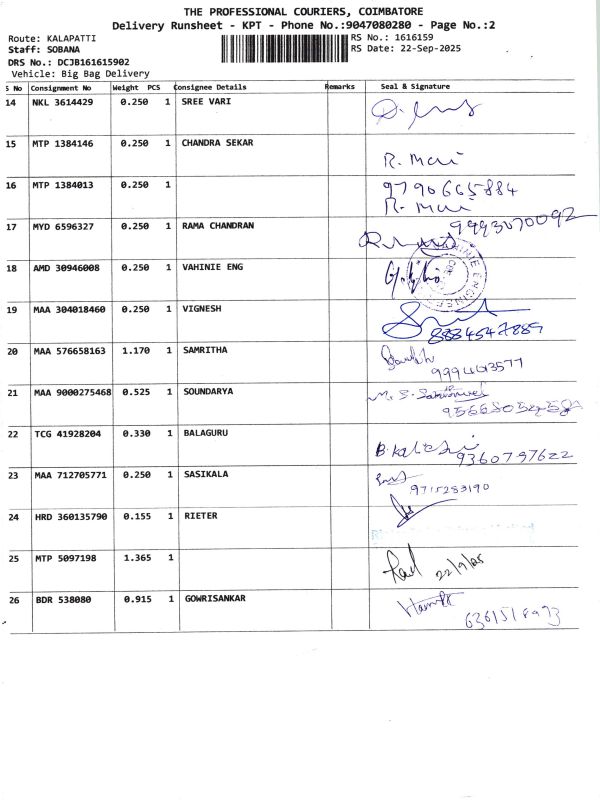 THE PROFESSIONAL COURIERS, COIMBATORE
Delivery Runsheet - KPT - Phone No.:9047080280 - Page No.:2
Route: KALAPATTI RS No.: 1616159
Staff: SOBANA RS Date: 22-Sep-2025
DRS No.: DCJB161615902
Vehicle: Big Bag Delivery
S No Consignment No Weight PCS Consignee Details Remarks Seal & Signature
14 NKL 3614429 0.250 1 SREE VARI
15 MTP 1384146 0.250 1 CHANDRA SEKAR
R. Mari
16 MTP 1384013 0.250 1 9790665884
R. Mari
17 MYD 6596327 0.250 1 RAMA CHANDRAN 9993070092
18 AMD 30946008 0.250 1 VAHINIE ENG
19 MAA 304018460 0.250 1 VIGNESH
8884547889
20 MAA 576658163 1.170 1 SAMRITHA
21 MAA 9000275468 0.525 1 SOUNDARYA
22 TCG 41928204 0.330 1 BALAGURU
9360797622
23 MAA 712705771 0.250 1 SASIKALA
9715283190
24 HRD 360135790 0.155 1 RIETER
25 MTP 5097198 1.365 1
22/9/25
26 BDR 538080 0.915 1 GOWRISANKAR
6361518973